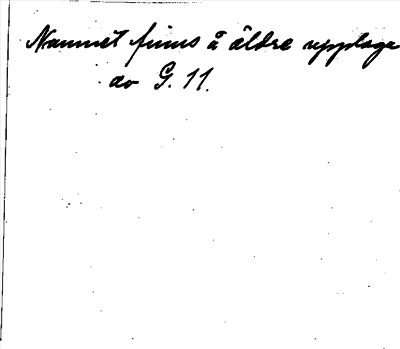 Namnet finns å äldre upplaga
av G. 11.